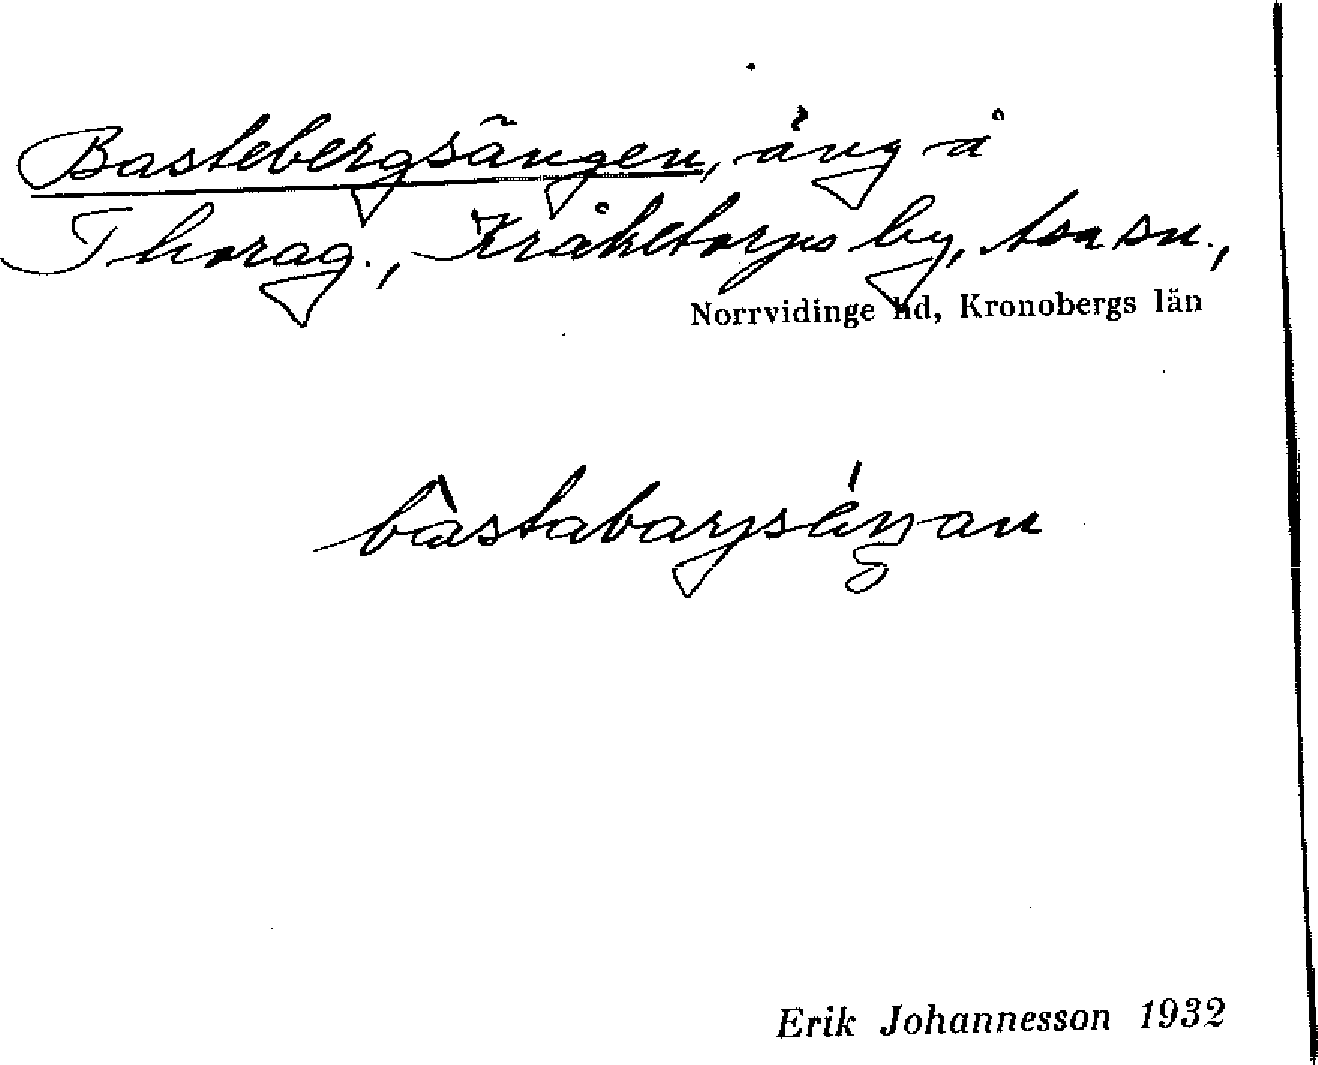 Bastebergsängen, äng å
Thorag., Kråketorps by, Asa sn.,
Norrvidinge hd, Kronobergs län
bàstabarjséŋan
Erik Johannesson 1932